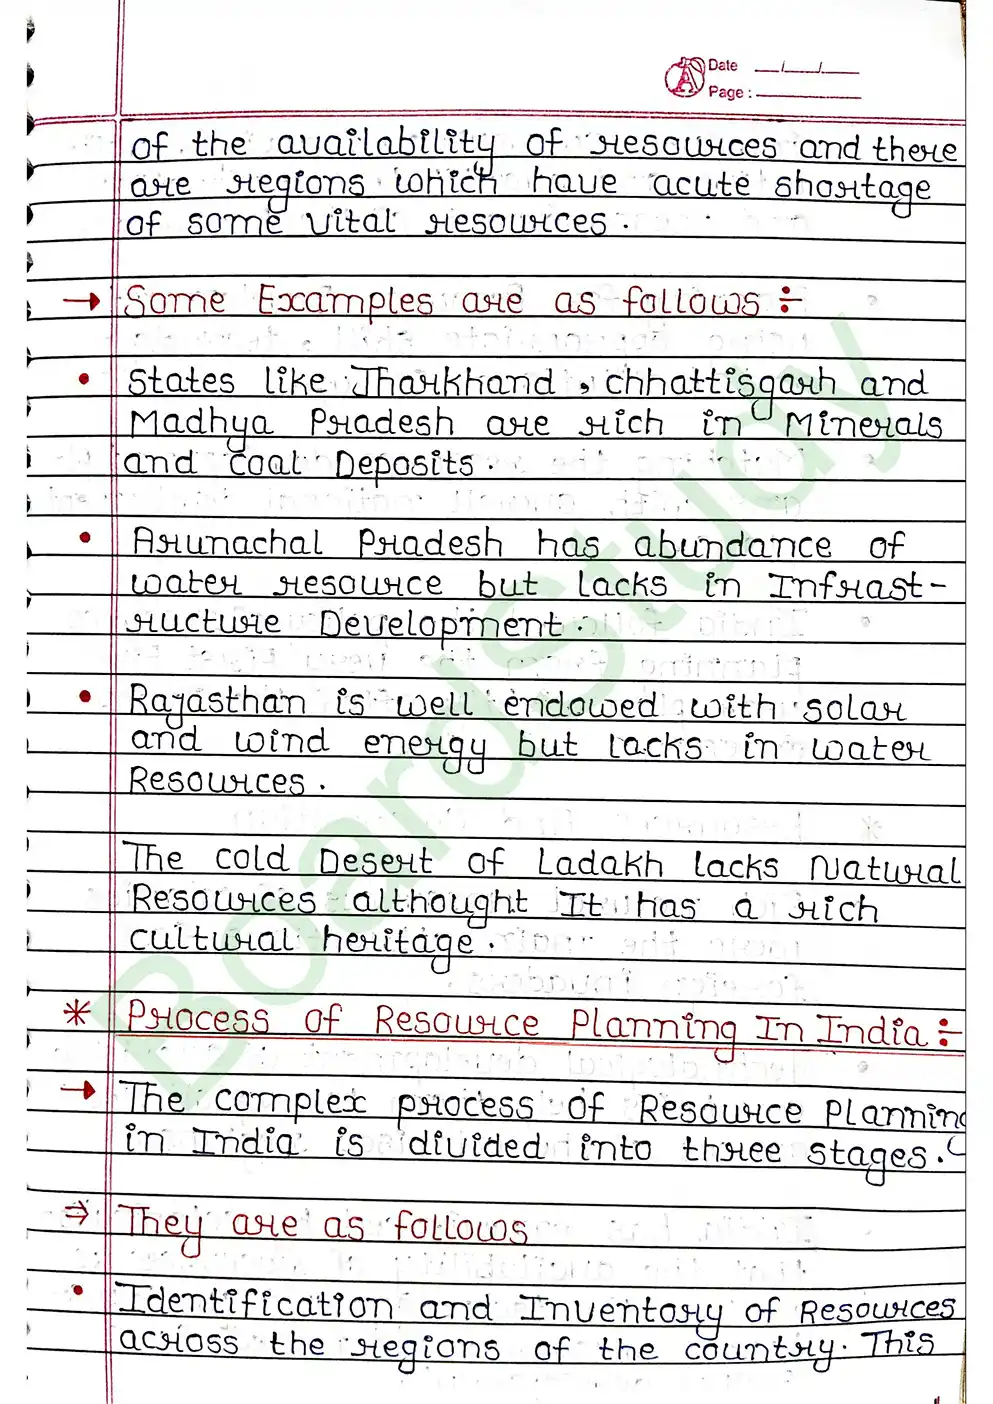 Date __/__/__
Page : ________
of the availability of resources and there
are regions which have acute shortage
of some vital resources.
→ Some Examples are as follows :-
• States like Jharkhand, chhattisgarh and
Madhya Pradesh are rich in Minerals
and Coal Deposits.
• Arunachal Pradesh has abundance of
water resource but lacks in Infrast-
ructure Development.
• Rajasthan is well endowed with solar
and wind energy but lacks in water
Resources.
The cold Desert of Ladakh lacks Natural
Resources althought It has a rich
cultural heritage.
* Process of Resource Planning In India :-
→ The complex process of Resource Planning
in India is divided into three stages.
⇒ They are as follows
• Identification and Inventory of Resources
across the regions of the country. This
BoardStudy